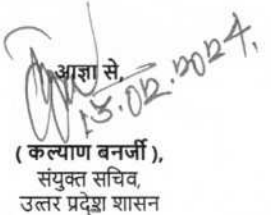 आज्ञा से,
15.02.2024.
( कल्याण बनर्जी ),
संयुक्त सचिव,
उत्तर प्रदेश शासन